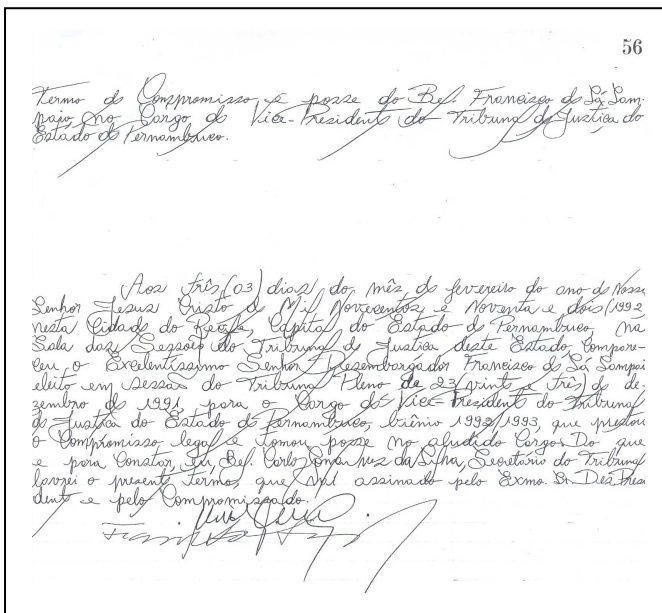 56
Termo de Compromisso e posse do Bel. Francisco de Sá Sam-
paio, no Cargo de Vice-Presidente do Tribunal de Justiça do
Estado de Pernambuco.
Aos três (03) dias do mês de fevereiro do ano de Nosso
Senhor Jesus Cristo de Mil Novecentos e Noventa e dois (1992
nesta Cidade do Recife, Capital do Estado de Pernambuco, na
Sala das Sessões do Tribunal de Justiça deste Estado, Compare-
ceu o Excelentíssimo Senhor Desembargador Francisco de Sá Sampai
eleito em sessão do Tribunal Pleno de 23 (vinte e três) de de-
zembro de 1991, para o Cargo de Vice-Presidente do Tribunal
de Justiça do Estado de Pernambuco, biênio 1992/1993, que prestou
o Compromisso legal e tomou posse no aludido Cargo. Do que
e para Constar, eu, Bel. Carlos da Silva, Secretário do Tribunal
lavrei o presente termo, que vai assinado pelo Exmo. Sr. Des. Presi
dente e pelo Compromissado.